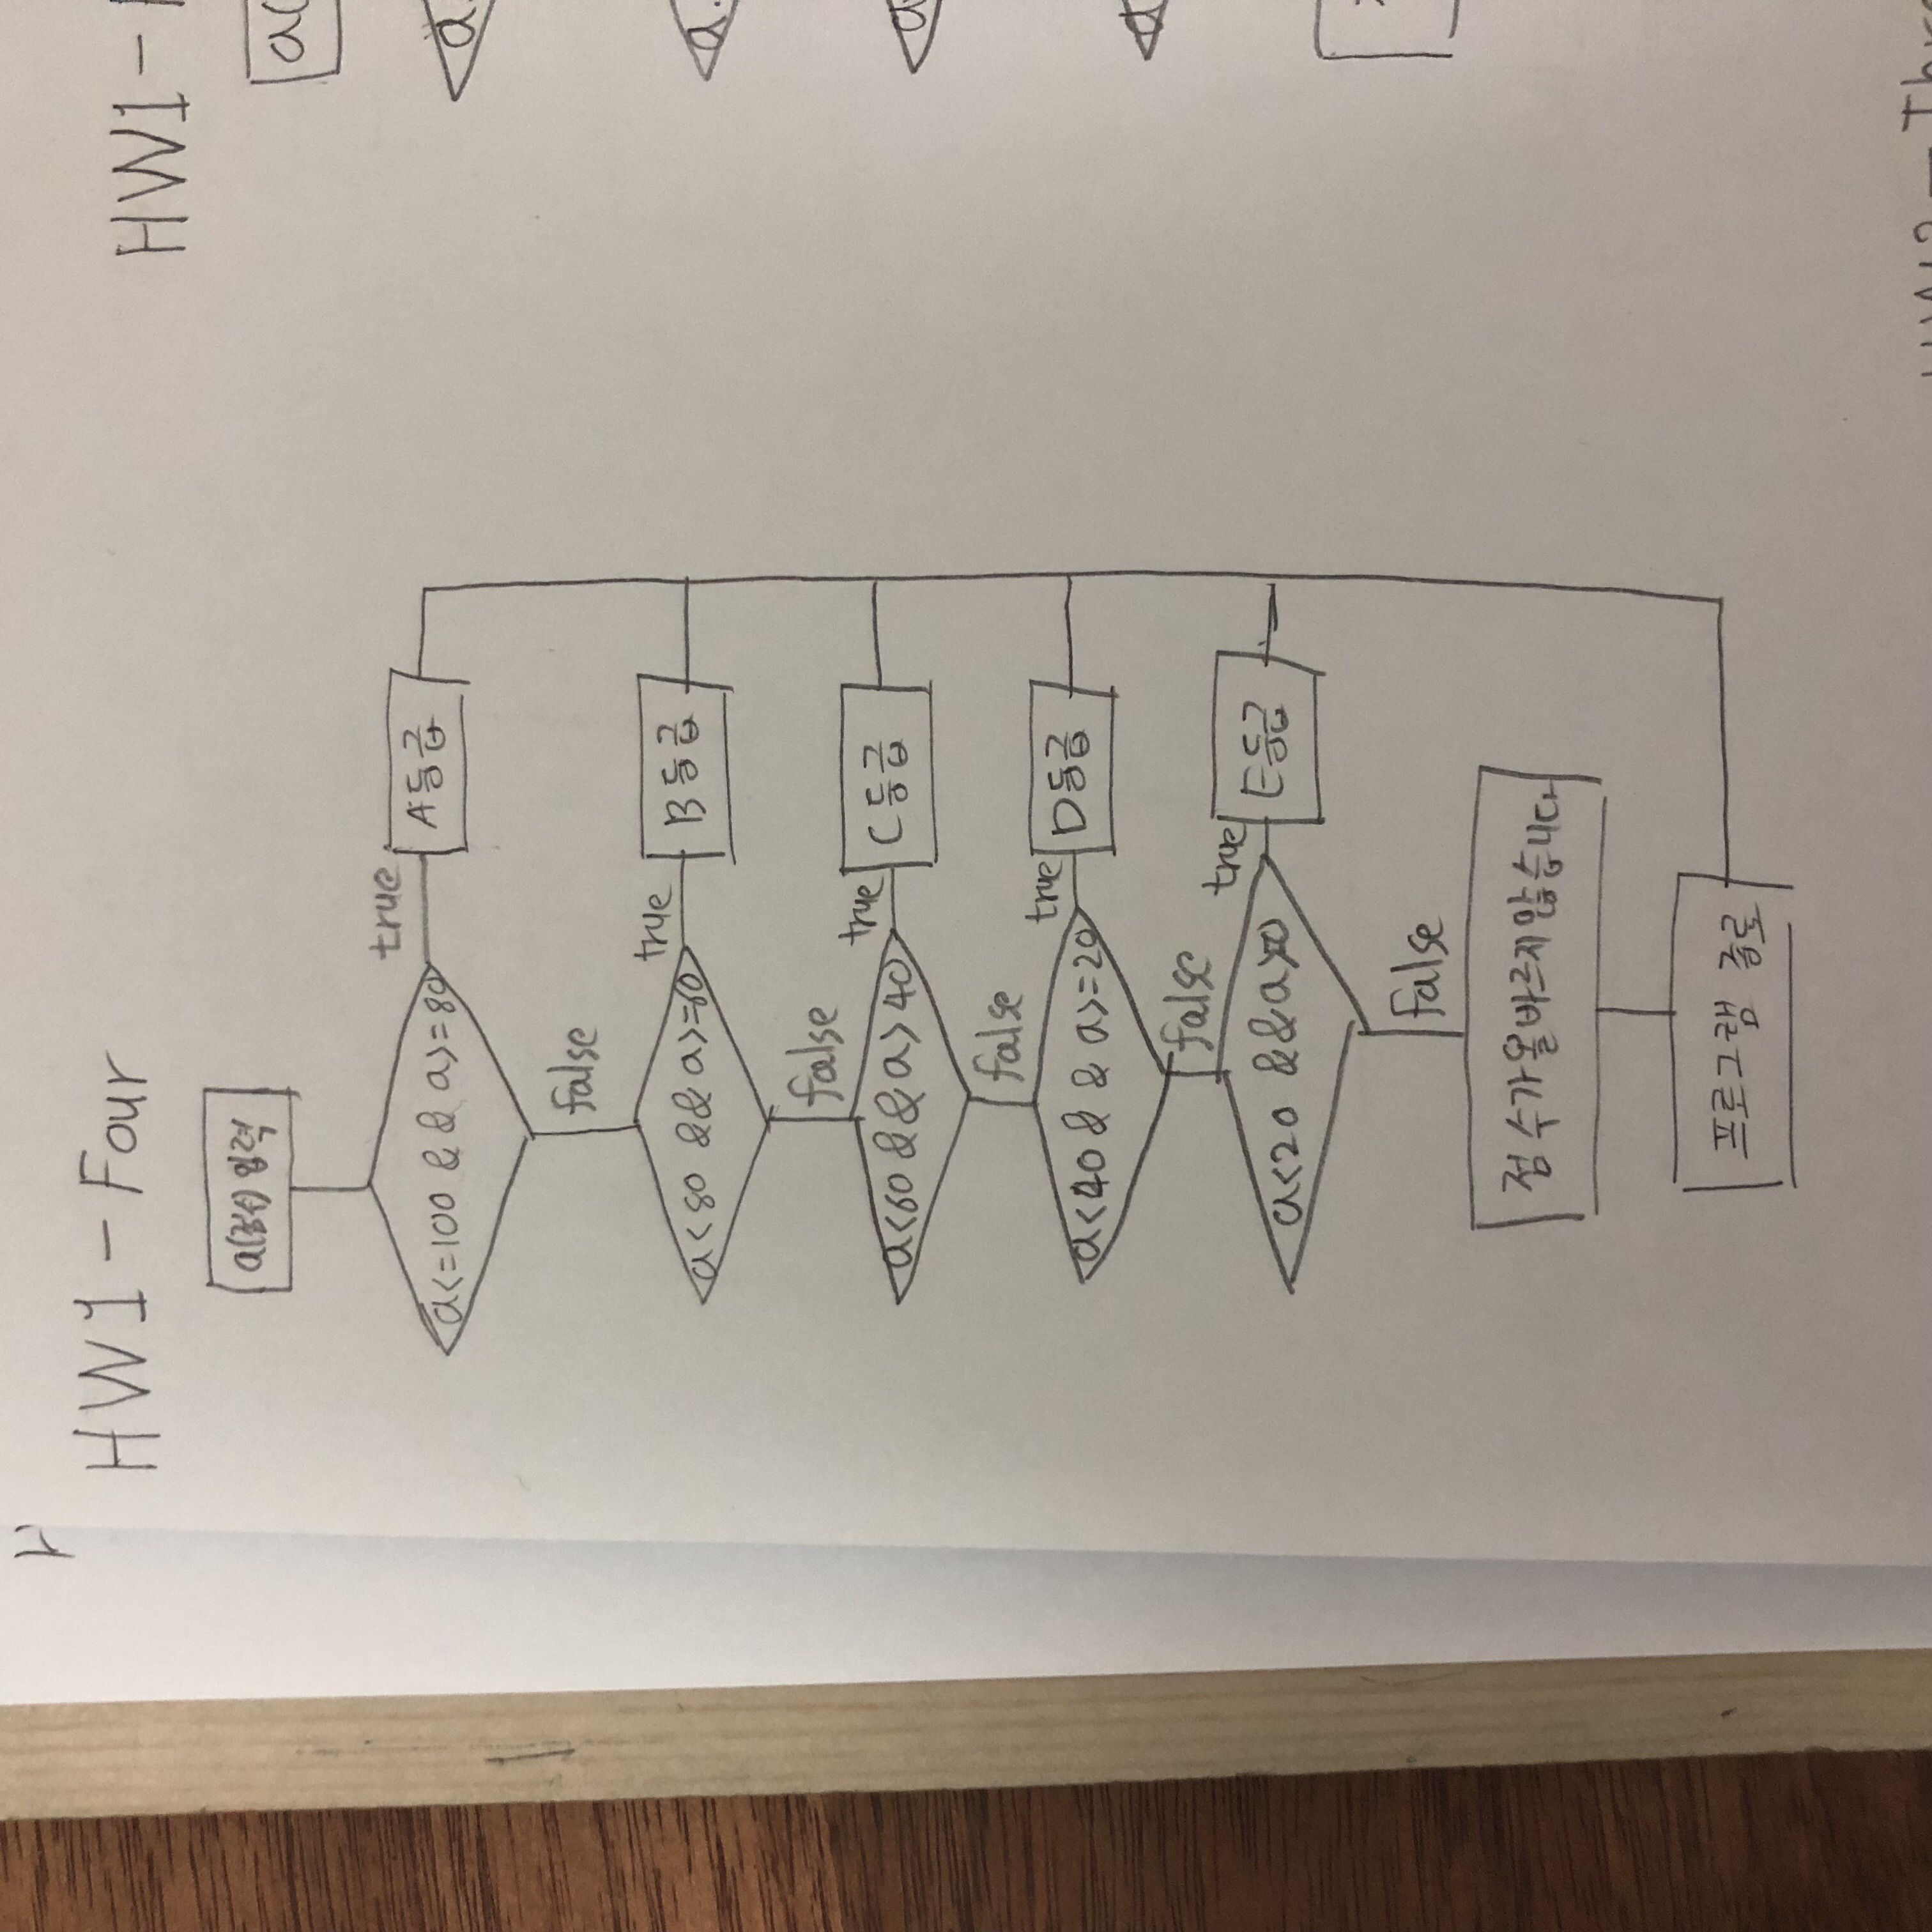 HW1-Four
HW1-
a(점수) 입력
a(
a<=100 && a>=80
true
A등급
a
false
a<80 && a>=60
true
B등급
a.
false
a<60 && a>40
true
C등급
a
false
a<40 && a>=20
true
D등급
a
false
a<20 && a>=0
true
E등급
false
점수가올바르지않습니다
프로그램 종료